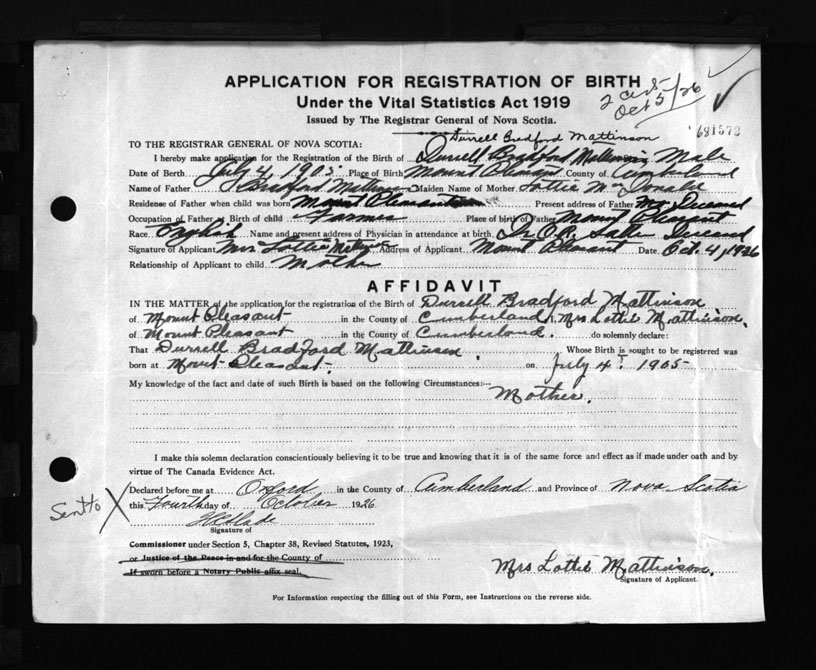 APPLICATION FOR REGISTRATION OF BIRTH
Under the Vital Statistics Act 1919
Issued by The Registrar General of Nova Scotia.
Oct 5/26
Durrell Bradford Mattinson
TO THE REGISTRAR GENERAL OF NOVA SCOTIA:
I hereby make application for the Registration of the Birth of Durrell Bradford Mattinson Male
Date of Birth July 4, 1905 Place of Birth Mount Pleasant County of Cumberland
Name of Father Bradford Mattinson Maiden Name of Mother Lottie McDonald
Residence of Father when child was born Mount Pleasant Present address of Father Deceased
Occupation of Father at Birth of child Farmer Place of birth of Father Mount Pleasant
Race English Name and present address of Physician in attendance at birth Dr Deceased
Signature of Applicant Mrs Lottie Mattinson Address of Applicant Mount Pleasant Date Oct. 4, 1926
Relationship of Applicant to child Mother
AFFIDAVIT
IN THE MATTER of the application for the registration of the Birth of Durrell Bradford Mattinson
of Mount Pleasant in the County of Cumberland I, Mrs Lottie Mattinson,
of Mount Pleasant in the County of Cumberland. do solemnly declare:
That Durrell Bradford Mattinson Whose Birth is sought to be registered was
born at Mount Pleasant. on July 4. 1905
My knowledge of the fact and date of such Birth is based on the following Circumstances:—
Mother.
I make this solemn declaration conscientiously believing it to be true and knowing that it is of the same force and effect as if made under oath and by
virtue of The Canada Evidence Act.
Declared before me at Oxford in the County of Cumberland and Province of Nova Scotia
Sent to X
this Fourth day of October 1926
Signature of
Commissioner under Section 5, Chapter 38, Revised Statutes, 1923,
or Justice of the Peace in and for the County of
If sworn before a Notary Public affix seal.
Mrs Lottie Mattinson.
Signature of Applicant.
For Information respecting the filling out of this Form, see Instructions on the reverse side.